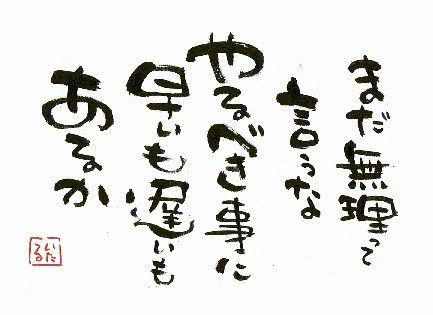 まだ無理って
言うな
やるべき事に
早いも遅いも
あるか